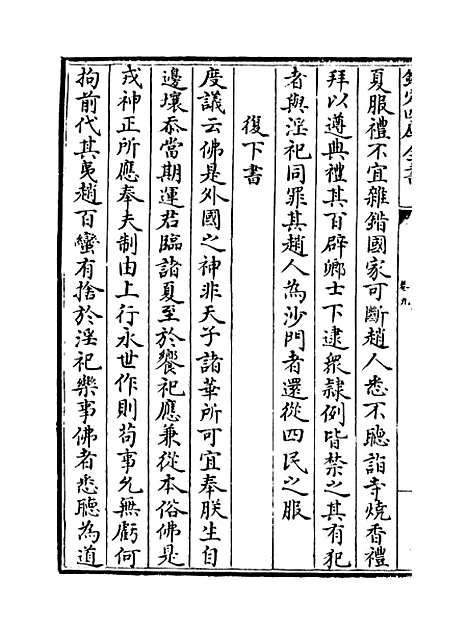 欽定四庫全書
卷九
夏服禮不宜雜錯國家可斷趙人悉不聽詣寺燒香禮
拜以遵典禮其百辟卿士下逮衆隷例皆禁之其有犯
者與淫祀同罪其趙人為沙門者還從四民之服
復下書
度議云佛是外國之神非天子諸華所可宜奉朕生自
邊壤忝當期運君臨諸夏至於饗祀應兼從本俗佛是
戎神正所應奉夫制由上行永世作則苟事允無虧何
拘前代其夷趙百蠻有捨於淫祀樂事佛者悉聽為道